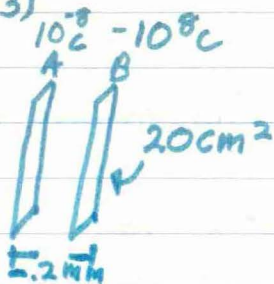 3)
10⁻⁸c -10⁸c
A B
20cm²
.2mm